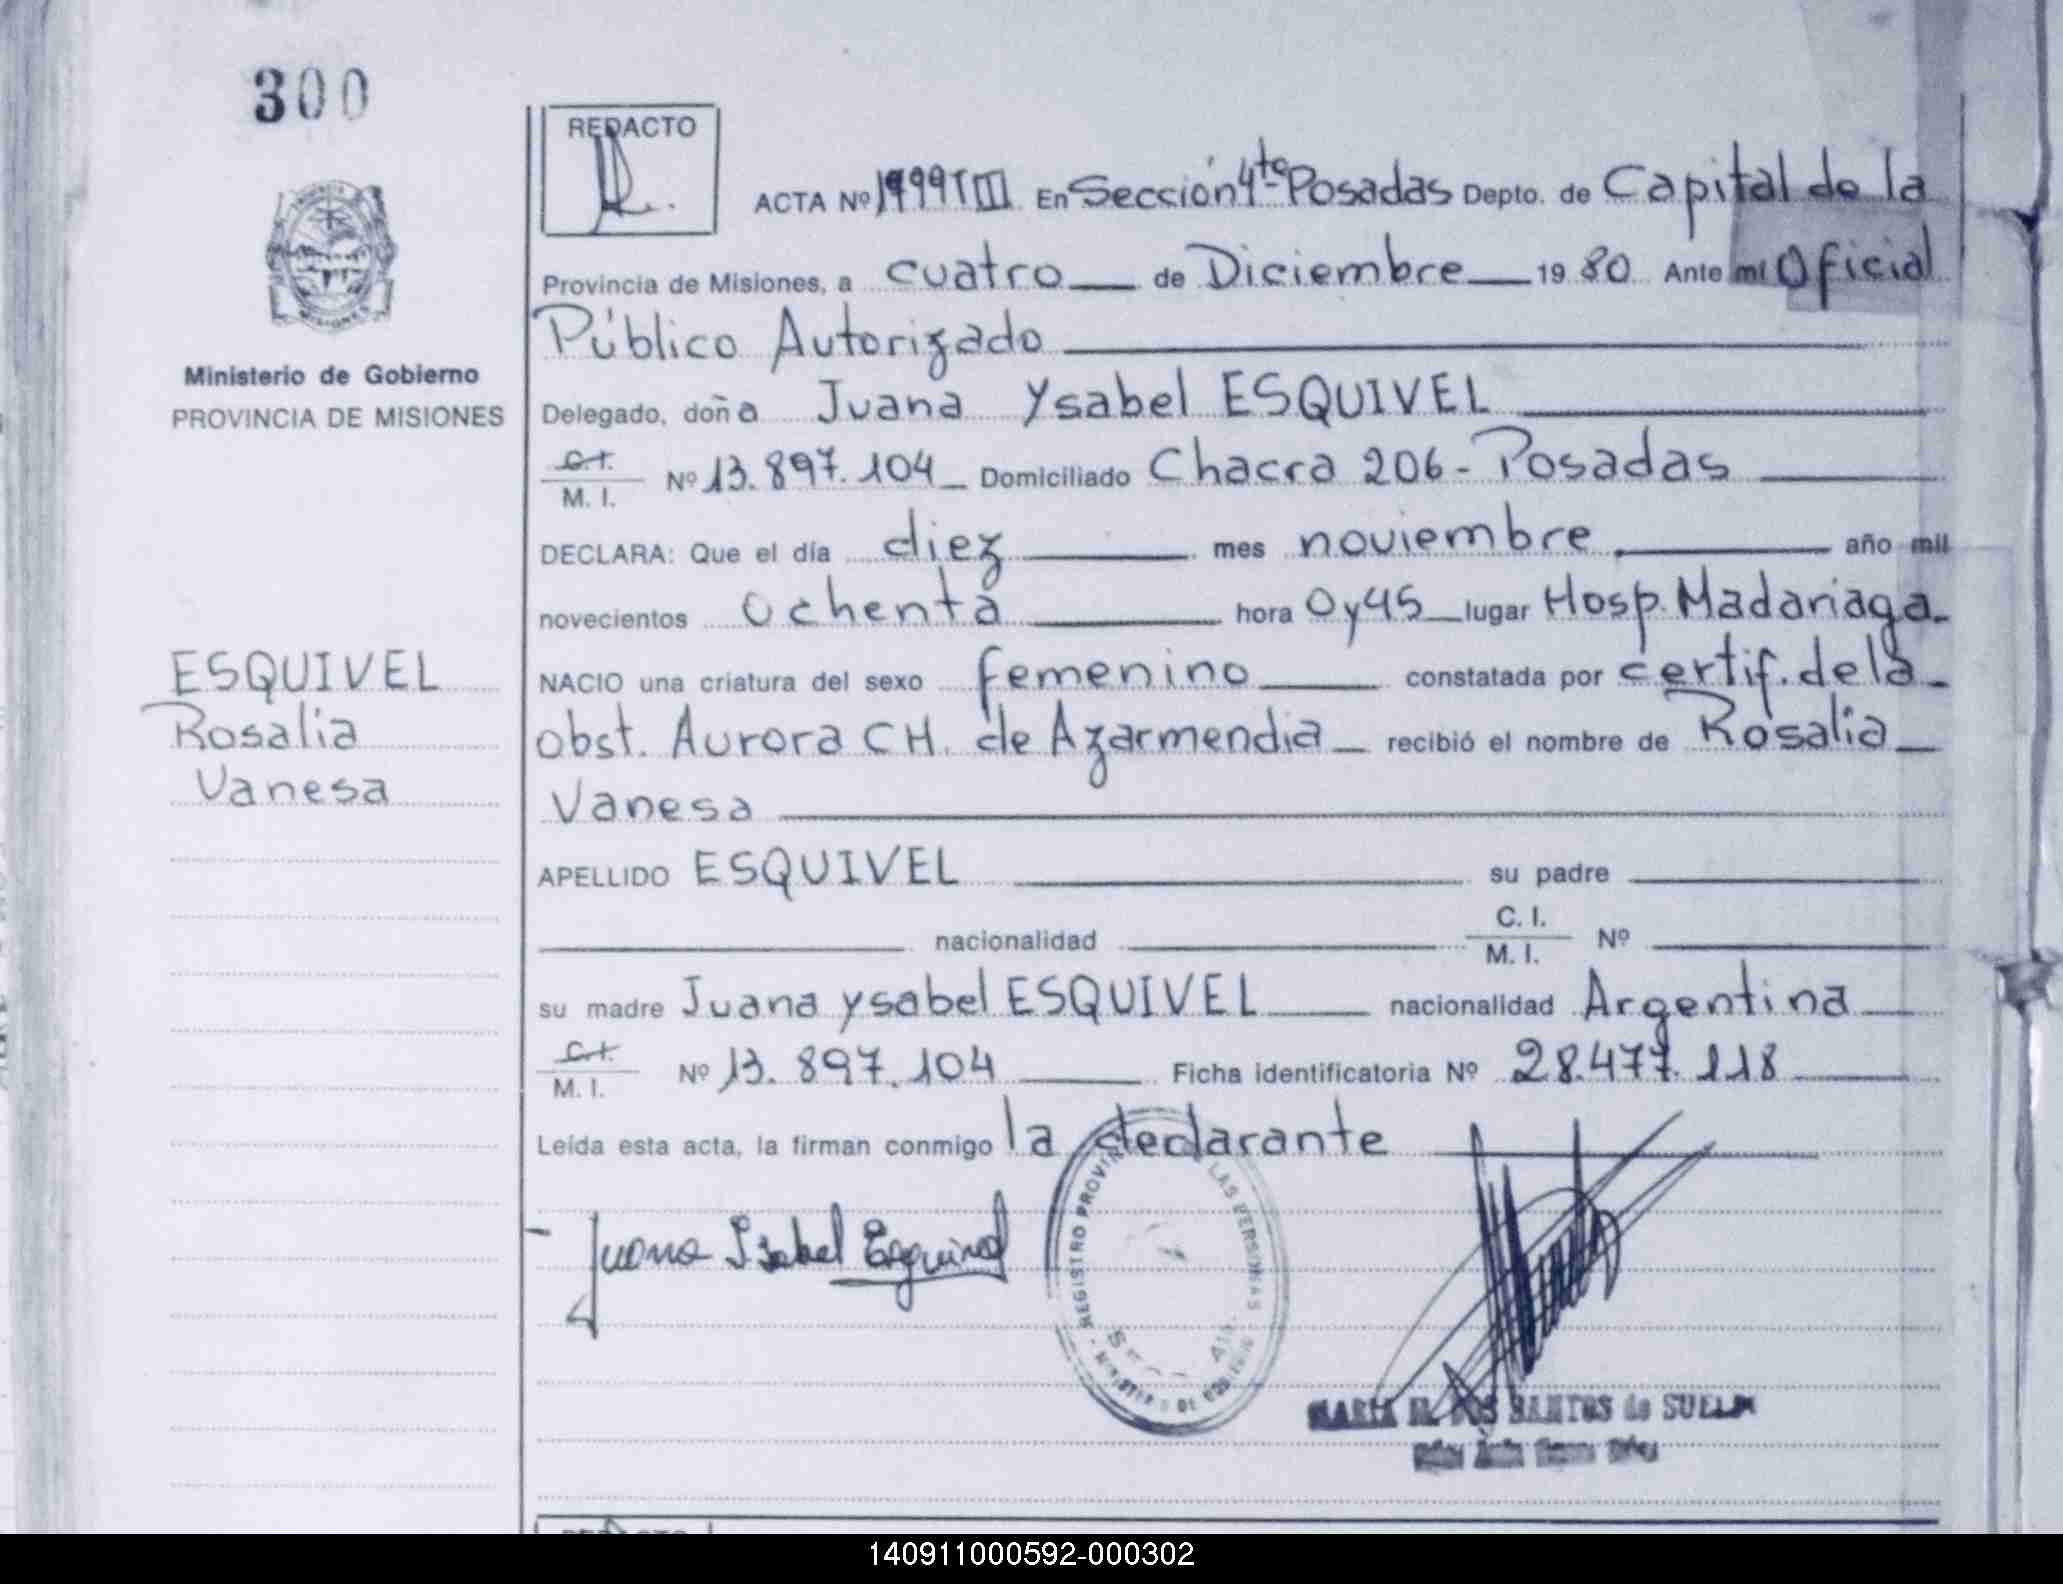 300
REDACTO
ACTA Nº 1999 T III En Sección 4ta Posadas Depto. de Capital de la
Provincia de Misiones, a cuatro de Diciembre 19 80 Ante mí Oficial
Público Autorizado
Ministerio de Gobierno
PROVINCIA DE MISIONES
Delegado, doña Juana Ysabel ESQUIVEL
C.I.
M. I. Nº 13.897.104 Domiciliado Chacra 206 - Posadas
DECLARA: Que el día diez mes noviembre año mil
novecientos ochenta hora 0 y 45 lugar Hosp. Madariaga
NACIO una criatura del sexo femenino constatada por certif. de la
obst. Aurora CH. de Azarmendia recibió el nombre de Rosalia
Vanesa
ESQUIVEL
Rosalia
Vanesa
APELLIDO ESQUIVEL su padre
nacionalidad C. I.
M. I. Nº
su madre Juana Ysabel ESQUIVEL nacionalidad Argentina
C.I.
M. I. Nº 13.897.104 Ficha identificatoria Nº 28.477.118
Leída esta acta, la firman conmigo la declarante
Juana Isabel Esquivel
REGISTRO PROVIN LAS PERSONAS
MINISTERIO DE GOBIERNO
MARIA DOS SANTOS de
140911000592-000302